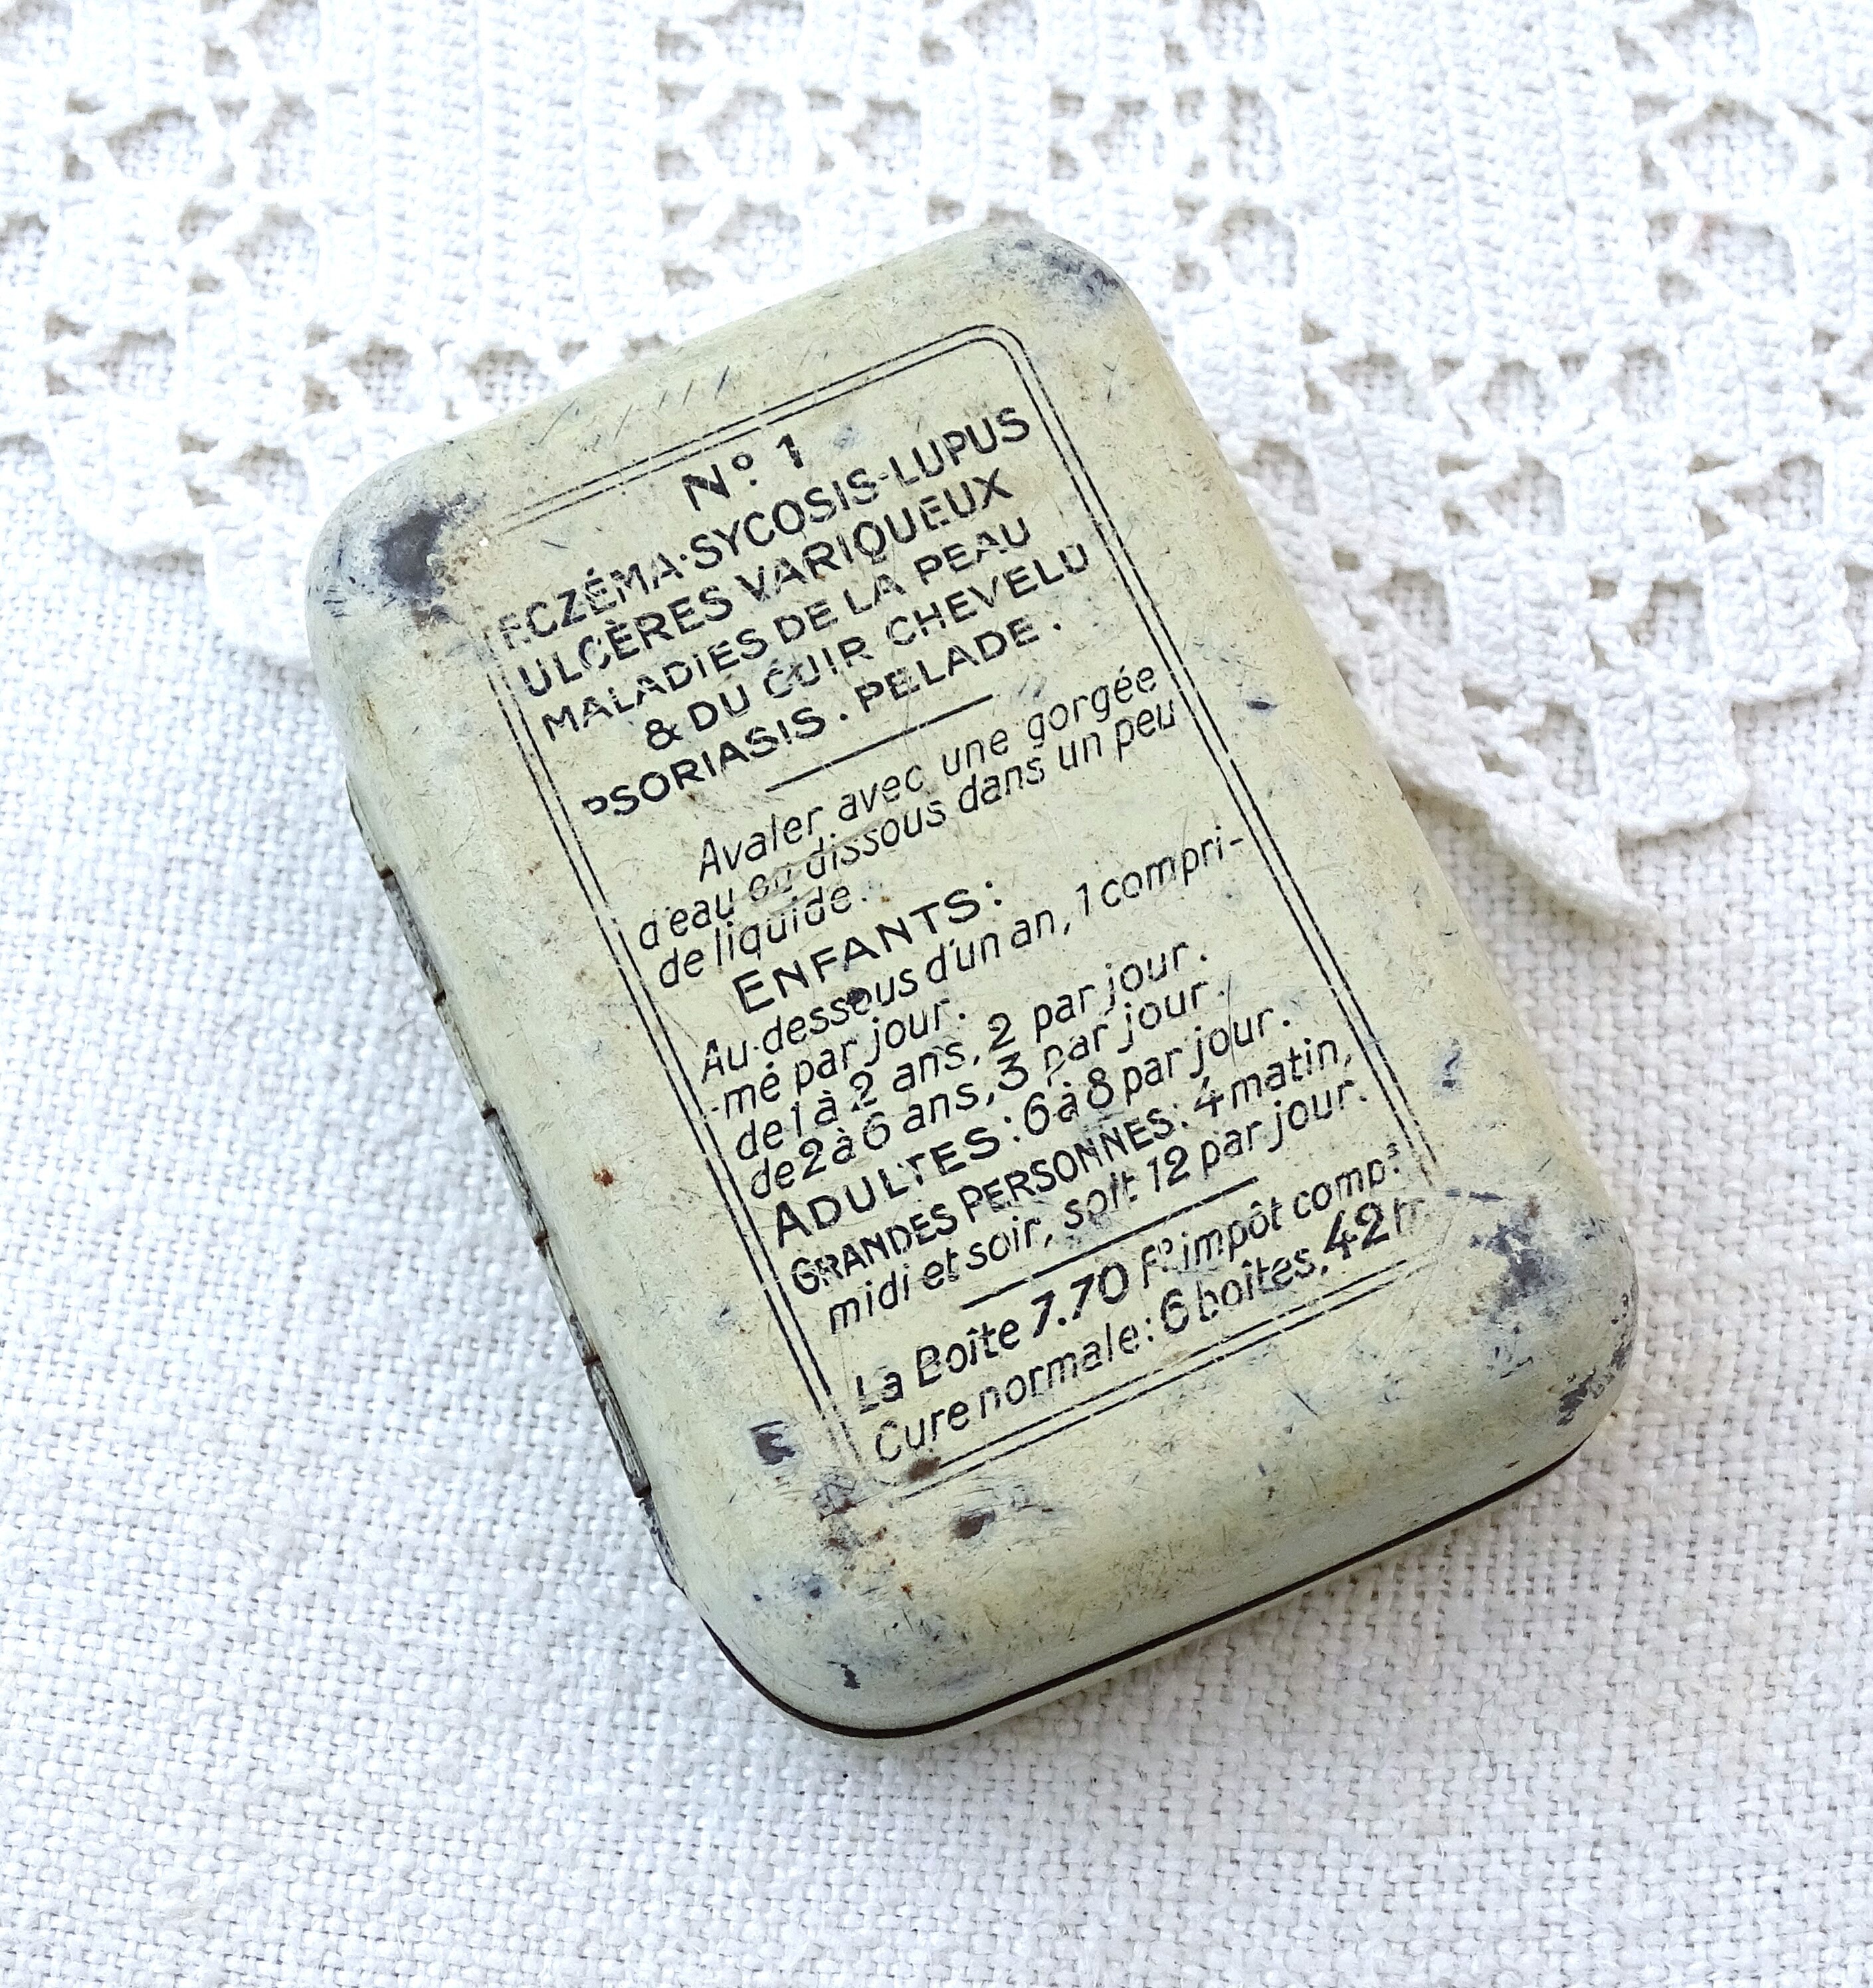 Nº 1
ECZÉMA·SYCOSIS-LUPUS
ULCÈRES VARIQUEUX
MALADIES DE LA PEAU
& DU CUIR CHEVELU
PSORIASIS. PELADE.
Avaler avec une gorgée
d'eau ou dissous dans un peu
de liquide.
ENFANTS:
Au-dessous d'un an, 1 compri-
-mé par jour.
de 1 à 2 ans, 2 par jour.
de 2 à 6 ans, 3 par jour.
ADULTES: 6 à 8 par jour.
GRANDES PERSONNES: 4 matin,
midi et soir, soit 12 par jour.
La Boîte 7.70 Fº impôt comp.ˢ
Cure normale: 6 boîtes, 42 fr.